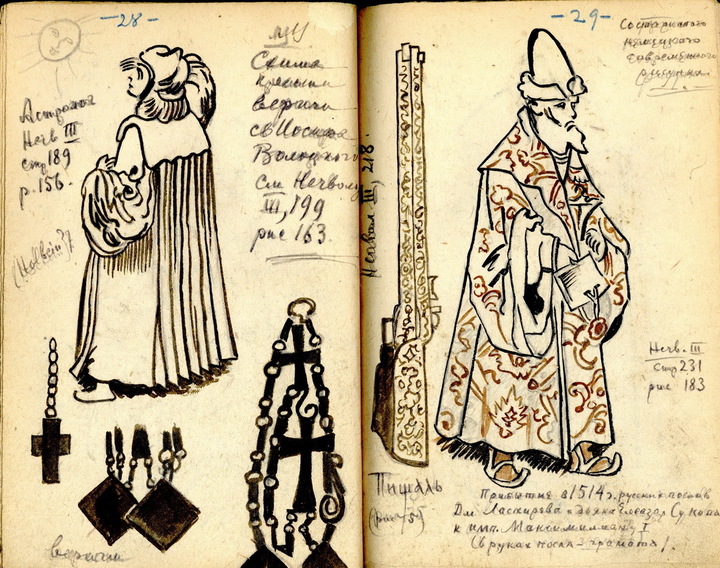 -28-
Астролог
Нечв III
стр 189
р. 156.
(Holbein?)
Схима
вериги
св Иосифа
Волоцкого
см Нечвол
III, 199
рис 163.
вериги
-29-
Со старинного
немецкого
современного
рисунка
Нечвол III, 218.
Нечв. III
стр 231
рис 183
Пищаль
Прибытие в 1514 г. русских послов
Дм. Ласкирева и дьяка Елеазара Сукова
к имп. Максимилиану I
(В руках посла - грамота).